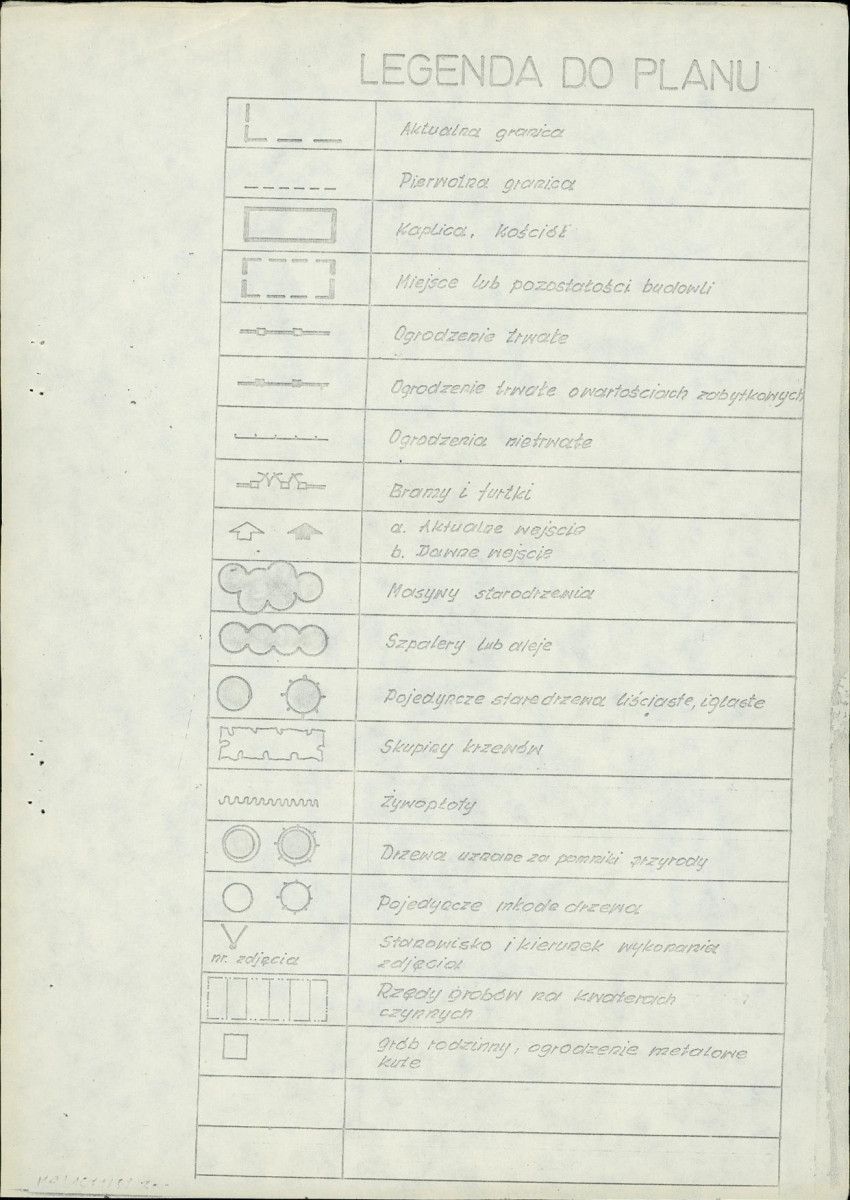 LEGENDA DO PLANU
Aktualna granica
Pierwotna granica
Kaplica, Kościół
Miejsce lub pozostałości budowli
Ogrodzenie trwałe
Ogrodzenie trwałe o wartościach zabytkowych
Ogrodzenia nietrwałe
Bramy i furtki
a. Aktualne wejście
b. Dawne wejście
Masywy starodrzewia
Szpalery lub aleje
Pojedyncze stare drzewa liściaste, iglaste
Skupiny krzewów
Żywopłoty
Drzewa uznane za pomniki przyrody
Pojedyncze młode drzewa
nr. zdjęcia
Stanowisko i kierunek wykonania
zdjęcia
Rzędy grobów na kwaterach
czynnych
grób rodzinny, ogrodzenie metalowe
kute